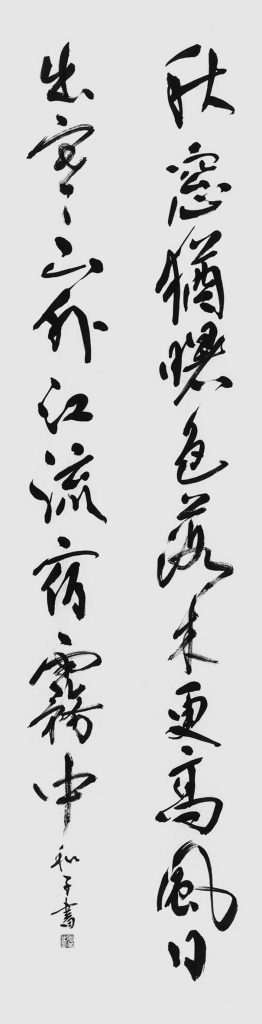 秋窓猶曙色落木更高風日
出寒山外江流宿霧中
和子書